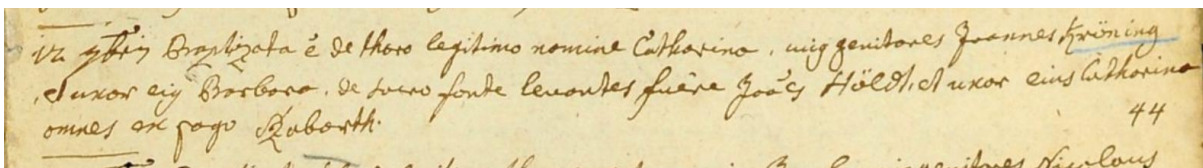 12 7bris Baptizata ē de thoro legitimo nomine Catharina, cuius genitores Joannes Kröning
et uxor eius Barbara, de sacro fonte levantes fuēre Joaēs Höldt, et uxor eius Catharina
omnes ex pago
44
genitores Nicolaus